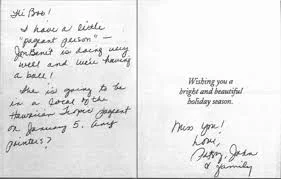 Hi Bob!
I have a little
"pageant person" —
JonBenét is doing very
well and we're having
a ball!
She is going to be
in a local to the
Hawaiian Tropic pageant
on January 5. Any
pointers?
Wishing you a
bright and beautiful
holiday season.
Miss you!
Love,
Patsy, John
& family